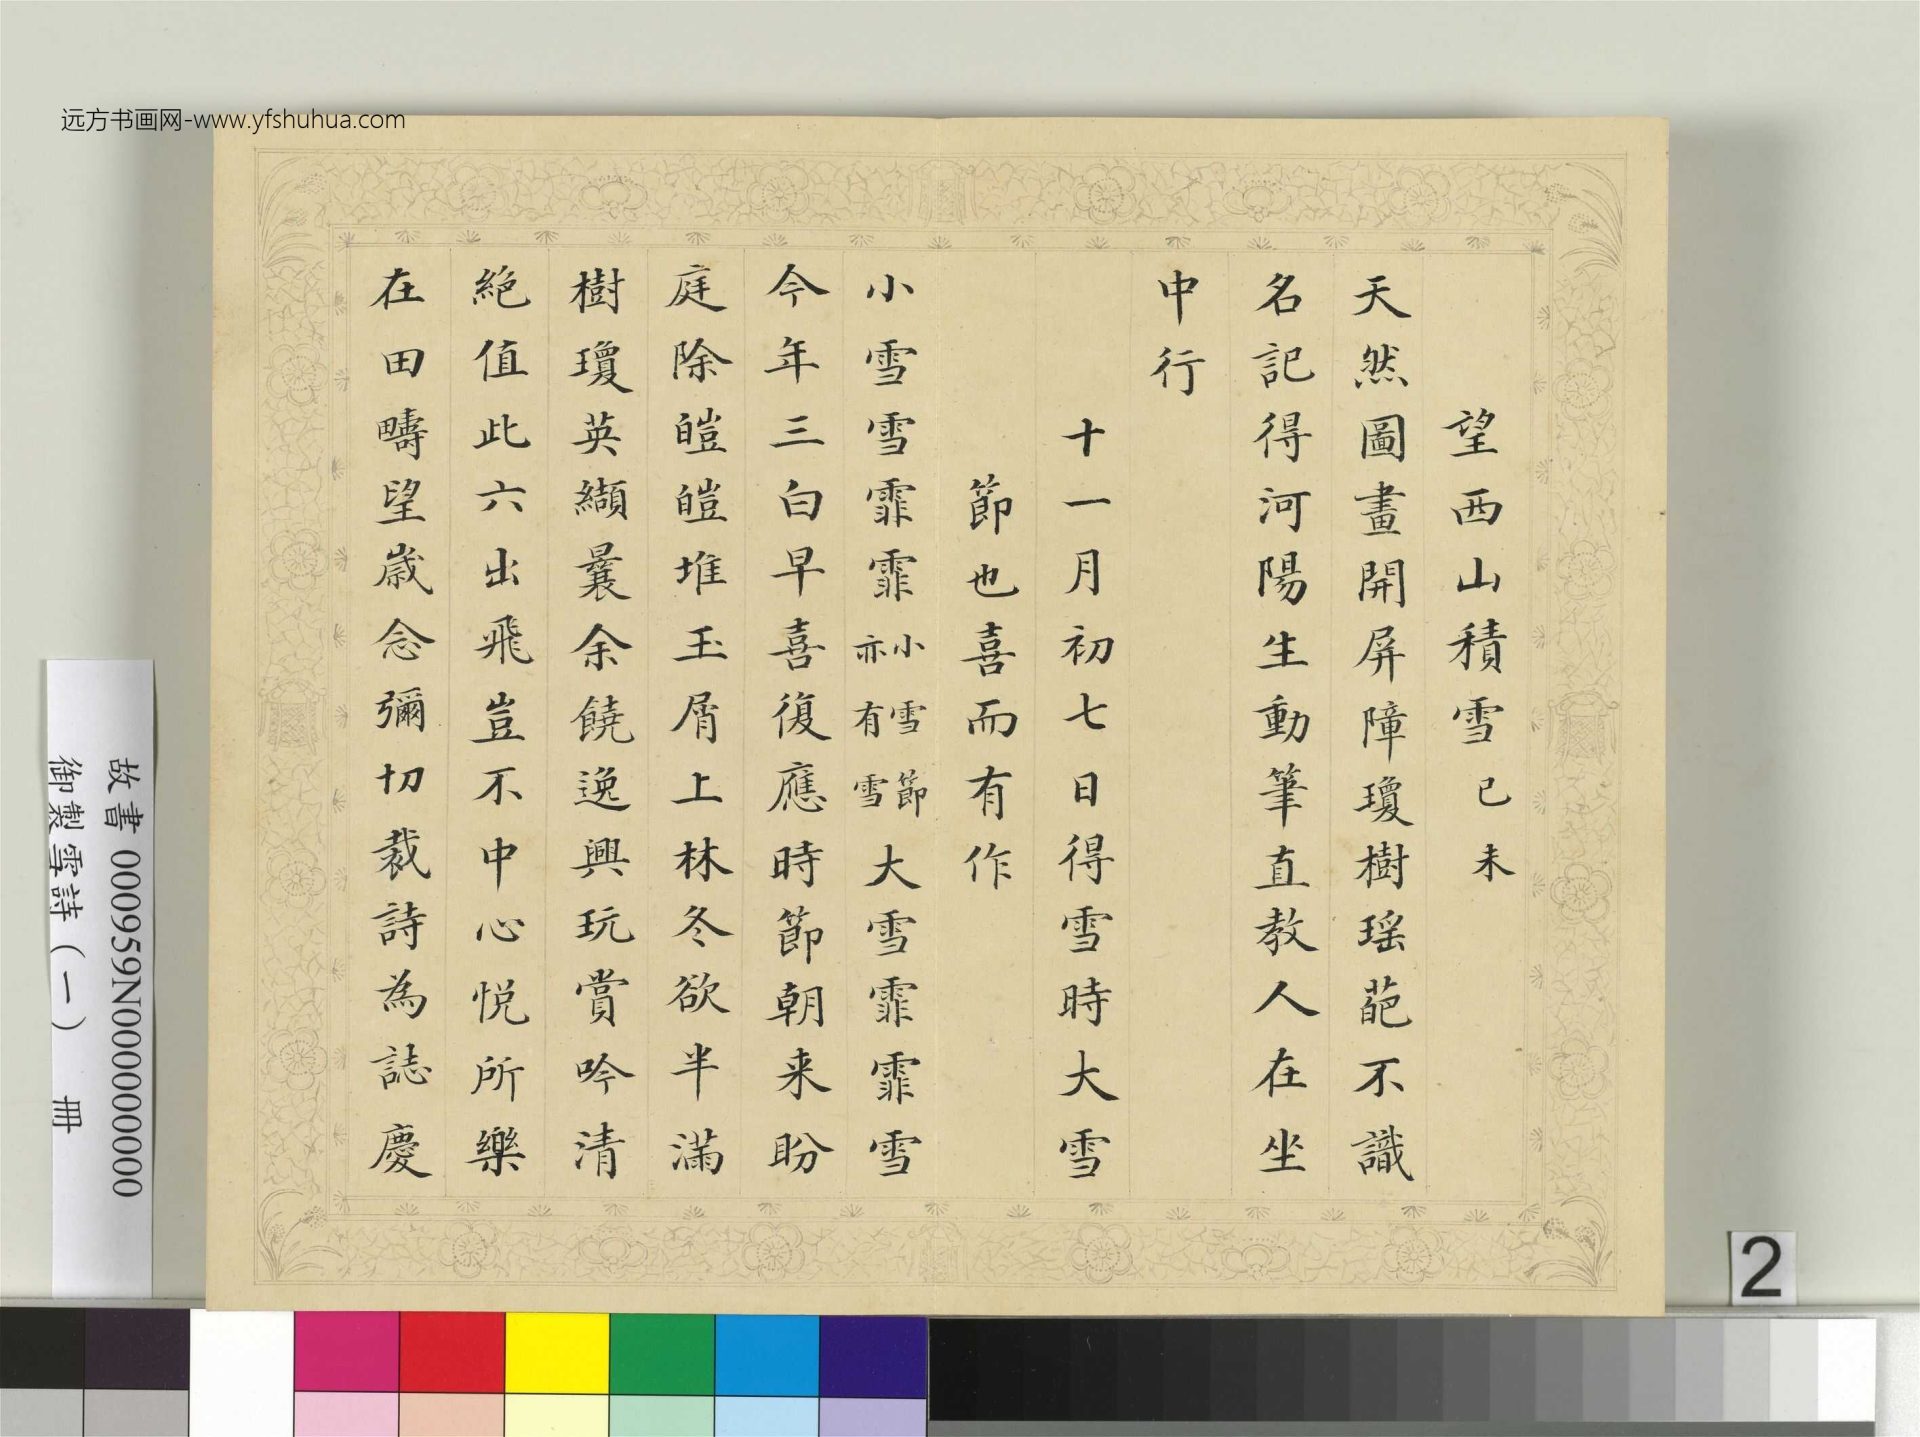 远方书画网-www.yfshuhua.com
望西山積雪己未
天然圖畫開屏障瓊樹瑶葩不識
名記得河陽生動筆直教人在坐
中行
十一月初七日得雪時大雪
節也喜而有作
小雪雪霏霏小雪節亦有雪大雪霏霏雪
今年三白早喜復應時節朝来盼
庭除皚皚堆玉屑上林冬欲半滿
樹瓊英纈曩余饒逸興玩賞吟清
絕值此六出飛豈不中心悦所樂
在田疇望歲念彌切裁詩為誌慶
故書 000959N000000000
御製雪詩(一) 冊
2